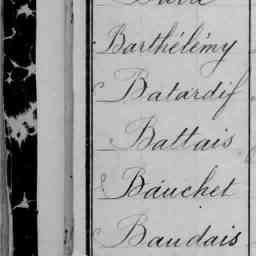 Barthélémy
Batardif
Battais
Bauchet
Baudais